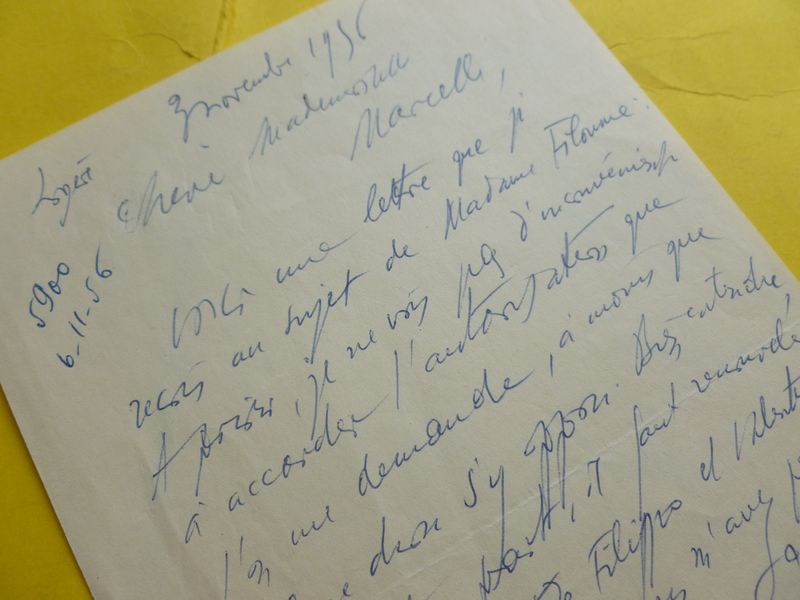 3 novembre 1956
Chère Mademoiselle
Marcelle,
5900
6-11-56
Voici une lettre que je
reçois au sujet de Madame Filoumé.
A priori, je ne vois pas d'inconvénients
à accorder l'autorisation que
l'on me demande, à moins que
s'y oppose. Bien entendu,
il faut
Filippo et
m'avez